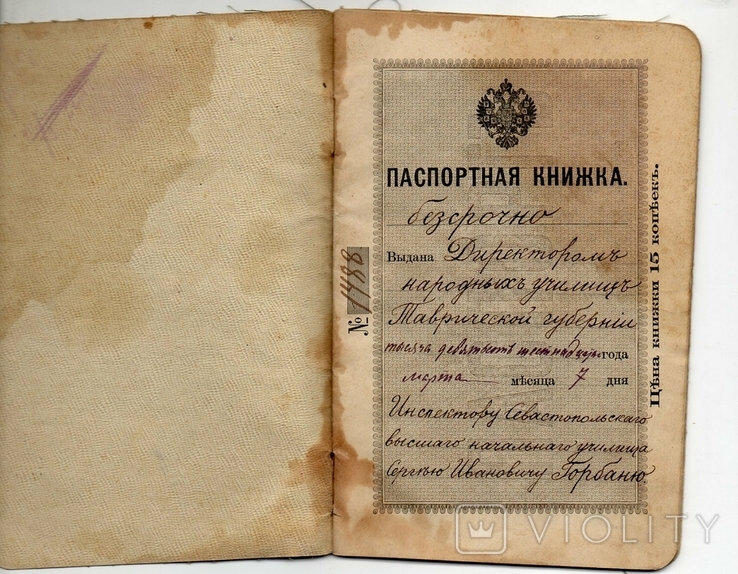 ПАСПОРТНАЯ КНИЖКА.
безсрочно
Выдана Директоромъ
народныхъ училищъ
Таврической губерніи
тысяча девятьсотъ шестнадцать года
марта мѣсяца 7 дня
Инспектору Севастопольскаго
высшаго начальнаго училища
Сергѣю Ивановичу Горбаню
№ 1488
Цѣна книжки 15 копѣекъ.
VIOLITY